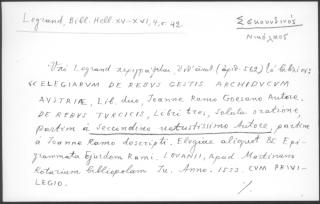 Legrand, Bibl. Hell. XV-XVI, 4, σ. 42
Σεκουνδινός
Νικόλαος
Legrand περιγράφει, (ἀριθ. 562)
ELEGIARUM DE REBUS GESTIS ARCHIDUCUM
AUSTRIAE, Lib. duo, Joanne Ramo Goesano Autore.
DE REBUS TURCICIS, Libri tres, soluta oratione,
partim a Secundino vetustissimo Autore, partim
a Joanne Ramo descripti. Elegiae aliquot & Epi-
grammata Ejusdem Rami. LOVANII, Apud Martinum
Rotarium bibliopolam Ju. Anno. 1553. CUM PRIVI-
LEGIO.